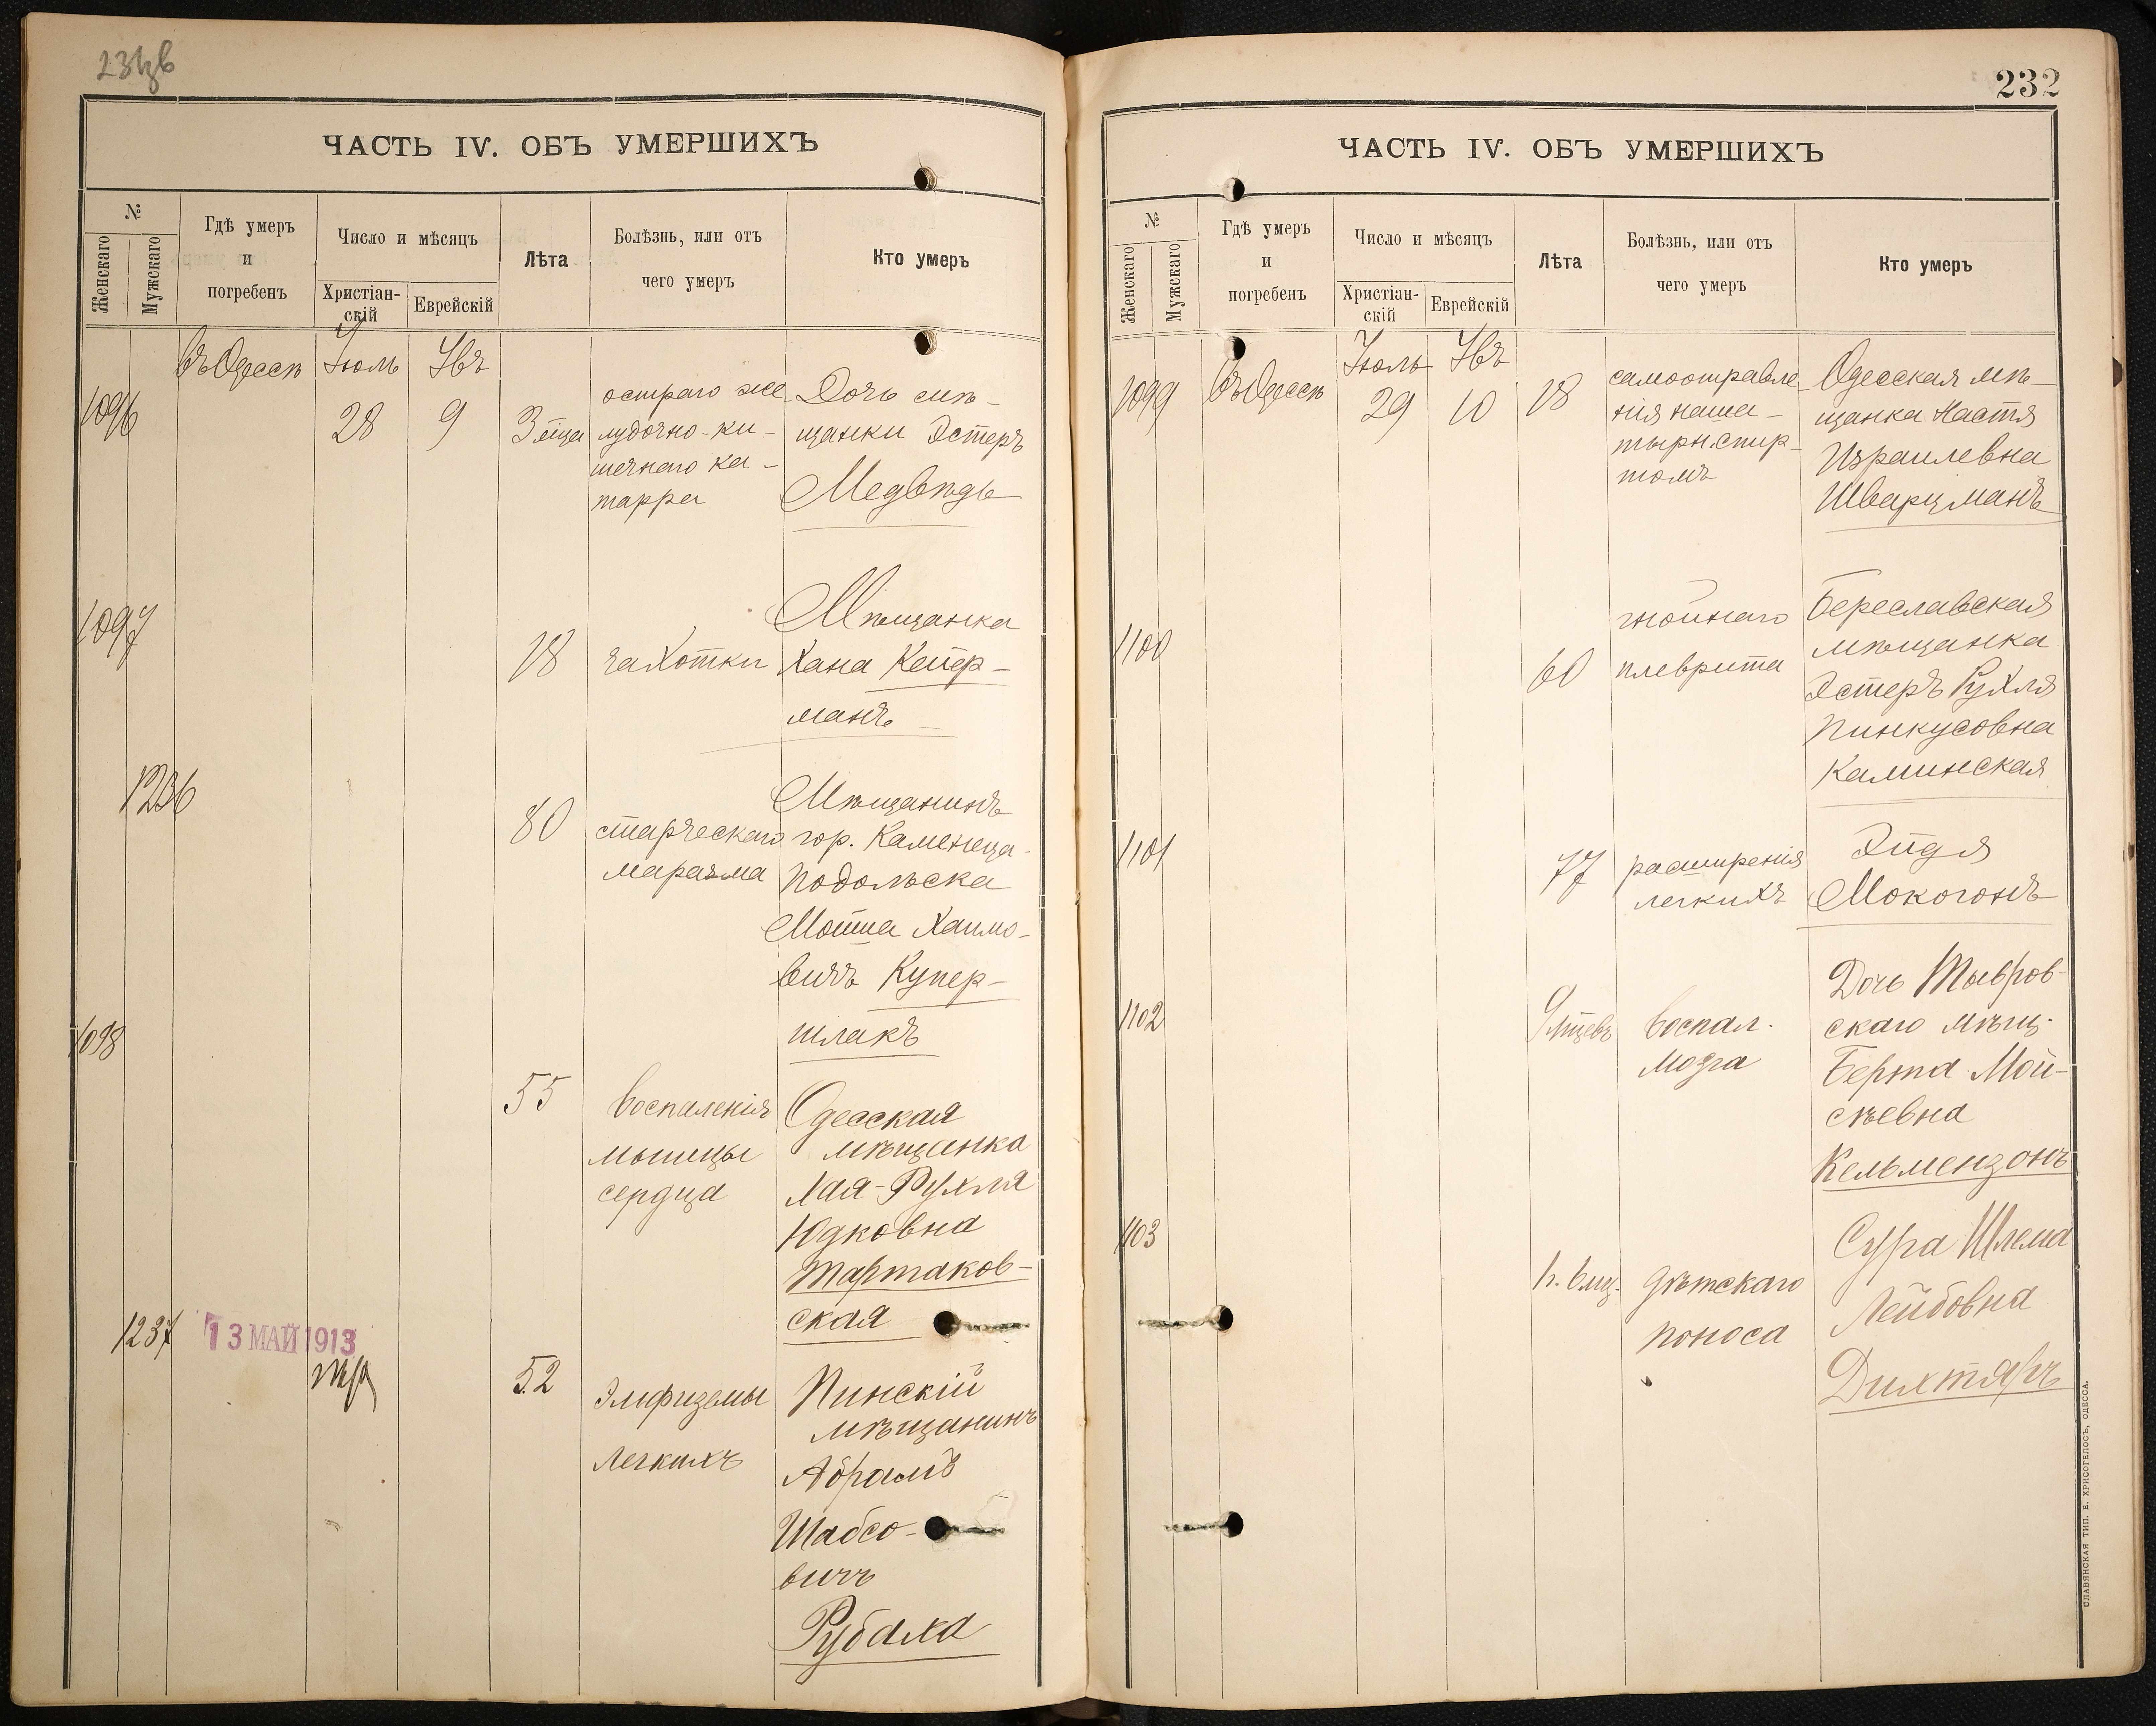 ЧАСТЬ IV. ОБЪ УМЕРШИХЪ
№
Женскаго
Мужскаго
Гдѣ умеръ
и
погребенъ
Число и мѣсяцъ
Христіан-
скій
Еврейскій
Лѣта
Болѣзнь, или отъ
чего умеръ
Кто умеръ
Въ Одессѣ Іюль Увъ
1096 28 9 3 мца
остраго же
лудочно-ки-
шечнаго ка-
тарра
Дочь мѣ-
щанки Эстеръ
Медвѣдь
1097 18 чахотки
Мѣщанка
Хана Кейф-
манъ
1236 80
старческаго
маразма
Мѣщанинъ
гор. Каменеца-
Подольска
Мошка Хаимо-
вичъ Купер-
шлакъ
1098 55
воспаленія
мышцы
сердца
Одесская
мѣщанка
Лая-Рухля
Юдковна
Тартаков-
ская
1237 13 МАЙ 1913
52
Эмфиземы
легкихъ
Пинскій
мѣщанинъ
Абрамъ
Шабсо-
вичъ
Рубаха
232
ЧАСТЬ IV. ОБЪ УМЕРШИХЪ
№
Женскаго
Мужскаго
Гдѣ умеръ
и
погребенъ
Число и мѣсяцъ
Христіан-
скій
Еврейскій
Лѣта
Болѣзнь, или отъ
чего умеръ
Кто умеръ
Въ Одессѣ Іюль Увъ
1099 29 10 18
самоотравле
нія наша-
тырн. спир-
томъ
Одесская мѣ-
щанка Настя
Израилевна
Шварцманъ
1100 60
гнойнаго
плеврита
Береславская
мѣщанка
Эстеръ Рухля
Пинкусовна
Каминская
1101 77
расширенія
легкихъ
Эйдя
Мокогонъ
1102 9 мцевъ
воспал.
мозга
Дочь Тывров-
скаго мѣщ.
Берта Мой-
сѣевна
Кельмензонъ
1103
дѣтскаго
поноса
Сура Шлема
Лейбовна
Дихтяръ
СЛАВЯНСКАЯ ТИП. Е. ХРИСОГЕЛОСЪ, ОДЕССА.